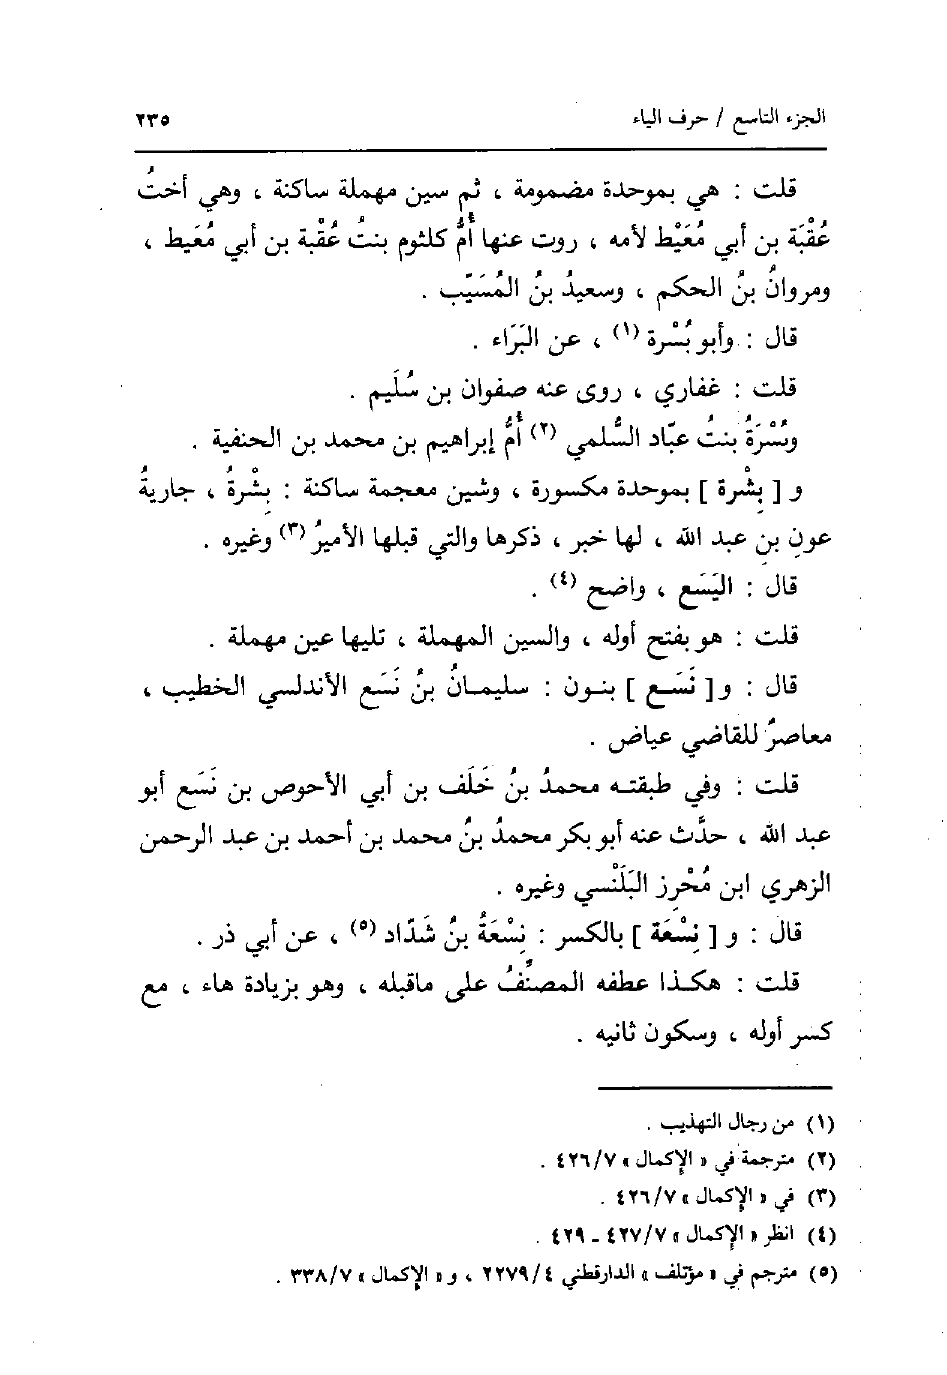 الجزء التاسع / حرف الياء ٢٣٥
قلت : هي بموحدة مضمومة ، ثم سين مهملة ساكنة ، وهي أختُ
عُقْبَة بن أبي مُعَيْط لأمه ، روت عنها أُمُّ كلثوم بنتُ عُقْبة بن أبي مُعَيط ،
ومروانُ بنُ الحكم ، وسعيدُ بنُ المُسَيّب .
قال : وأبو بُسْرة (١) ، عن البَرَاء .
قلت : غفاري ، روى عنه صفوان بن سُلَيم .
وبُسْرَةُ بنتُ عبّاد السُّلمي (٢) أُمُّ إبراهيم بن محمد بن الحنفية .
و [ بِشْرة ] بموحدة مكسورة ، وشين معجمة ساكنة : بِشْرةُ ، جاريةُ
عونِ بن عبد الله ، لها خبر ، ذكرها والتي قبلها الأميرُ (٣) وغيره .
قال : اليَسَع ، واضح (٤) .
قلت : هو بفتح أوله ، والسين المهملة ، تليها عين مهملة .
قال : و [ نَسَع ] بنون : سليمانُ بنُ نَسَع الأندلسي الخطيب ،
معاصرٌ للقاضي عياض .
قلت : وفي طبقته محمدُ بنُ خَلَف بن أبي الأحوص بن نَسَع أبو
عبد الله ، حدَّث عنه أبو بكر محمدُ بنُ محمد بن أحمد بن عبد الرحمن
الزهري ابن مُحْرِز البَلَنْسي وغيره .
قال : و [ نِسْعَة ] بالكسر : نِسْعَةُ بنُ شَدّاد (٥) ، عن أبي ذر .
قلت : هكذا عطفه المصنِّفُ على ماقبله ، وهو بزيادة هاء ، مع
كسر أوله ، وسكون ثانيه .
(١) من رجال التهذيب .
(٢) مترجمة في « الإكمال » ٤٢٦/٧ .
(٣) في « الإكمال » ٤٢٦/٧ .
(٤) انظر « الإكمال » ٤٢٧/٧ ـ ٤٢٩ .
(٥) مترجم في « مؤتلف » الدارقطني ٢٢٧٩/٤ ، و « الإكمال » ٣٣٨/٧ .